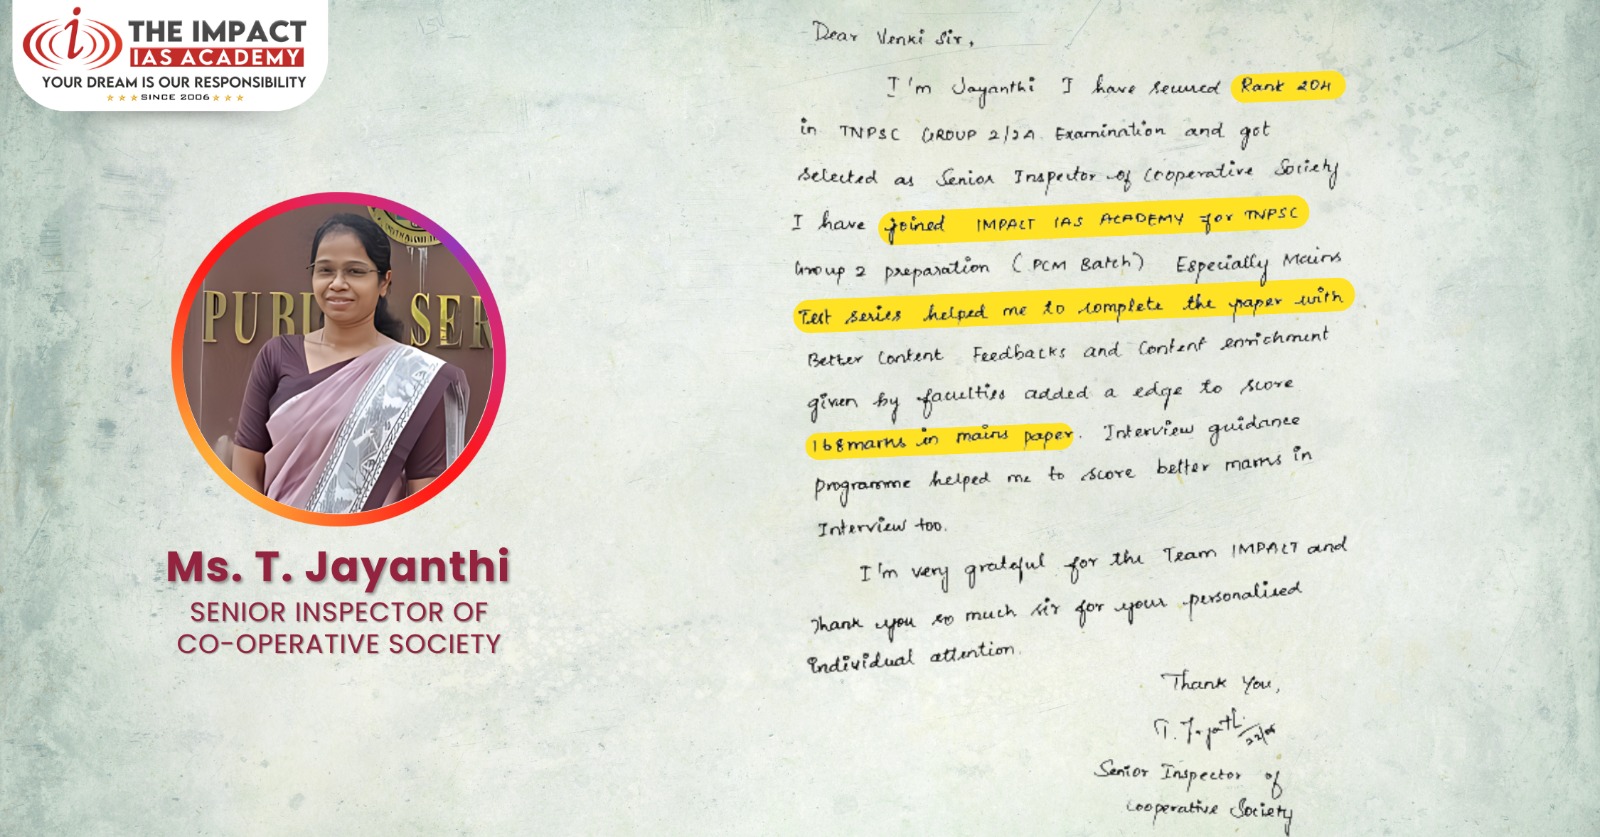 THE IMPACT
IAS ACADEMY
YOUR DREAM IS OUR RESPONSIBILITY
SINCE 2006
PUBL SER
Ms. T. Jayanthi
SENIOR INSPECTOR OF
CO-OPERATIVE SOCIETY
Dear Venki Sir,
I'm Jayanthi I have secured Rank 204
in TNPSC GROUP 2/2A Examination and got
selected as Senior Inspector of Cooperative Society
I have joined IMPACT IAS ACADEMY for TNPSC
Group 2 preparation (PCM Batch) Especially Mains
Test series helped me to complete the paper with
Better Content Feedbacks and Content enrichment
given by faculties added a edge to score
168 marks in mains paper. Interview guidance
programme helped me to score better marks in
Interview too.
I'm very grateful for the Team IMPACT and
Thank you so much sir for your personalised
individual attention.
Thank You,
Senior Inspector of
Cooperative Society